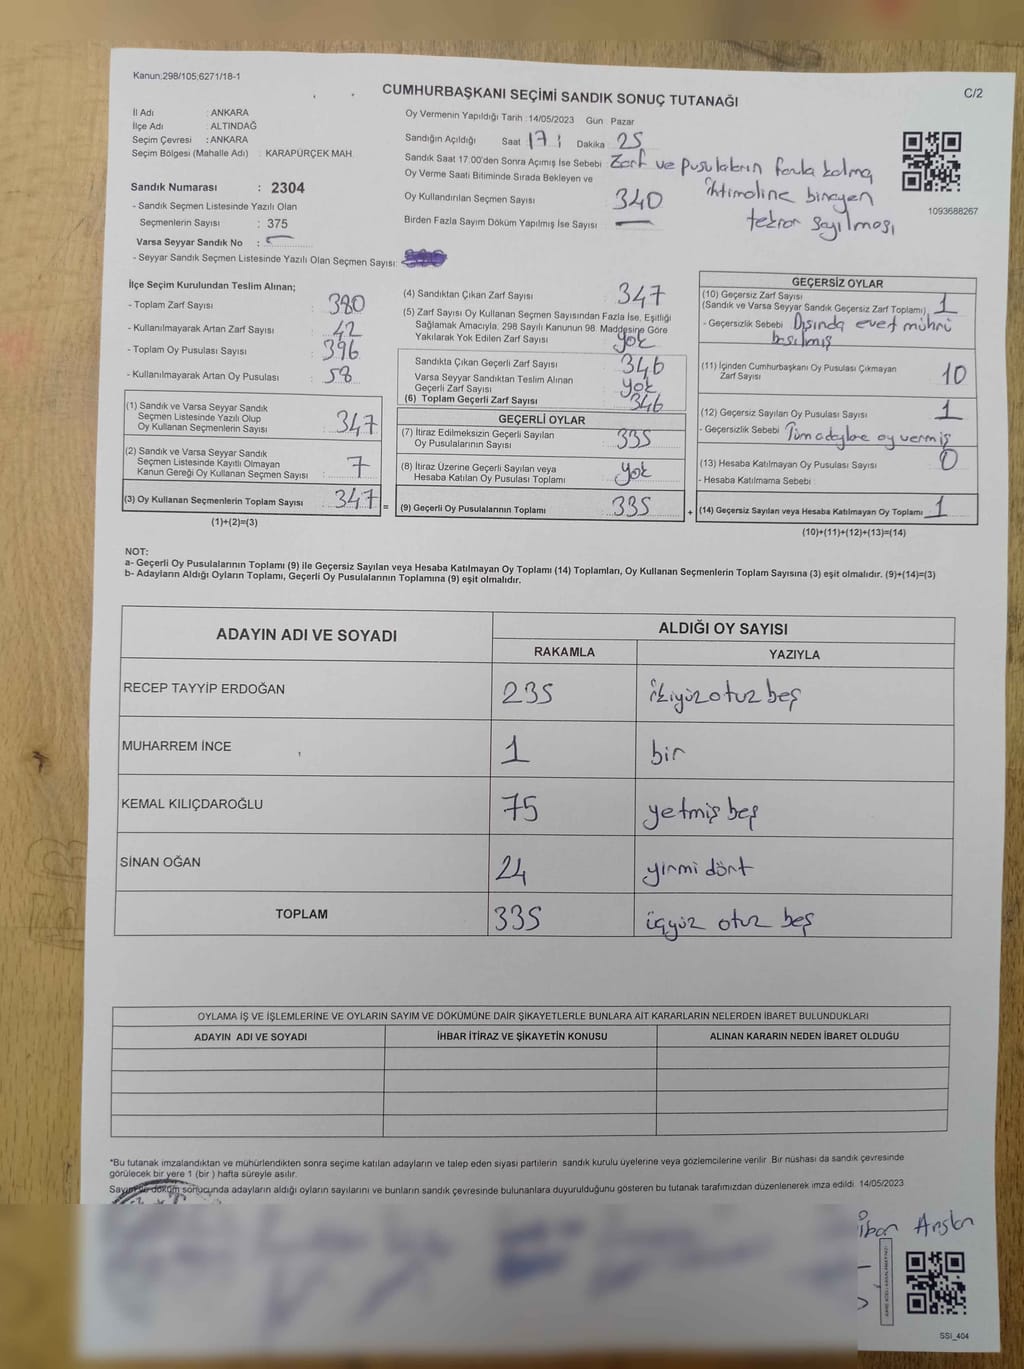 Kanun:298/105;6271/18-1
C/2
CUMHURBAŞKANI SEÇİMİ SANDIK SONUÇ TUTANAĞI
İl Adı : ANKARA
İlçe Adı : ALTINDAĞ
Seçim Çevresi : ANKARA
Seçim Bölgesi (Mahalle Adı) : KARAPÜRÇEK MAH.
Sandık Numarası : 2304
- Sandık Seçmen Listesinde Yazılı Olan
Seçmenlerin Sayısı : 375
Varsa Seyyar Sandık No :
- Seyyar Sandık Seçmen Listesinde Yazılı Olan Seçmen Sayısı:
Oy Vermenin Yapıldığı Tarih :14/05/2023 Gün Pazar
Sandığın Açıldığı Saat 17 : Dakika 25
Sandık Saat 17:00'den Sonra Açımış İse Sebebi Zarf ve pusulaların fazla
Oy Verme Saati Bitiminde Sırada Bekleyen ve ihtimaline
Oy Kullandırılan Seçmen Sayısı 340 tekrar sayılması
Birden Fazla Sayım Döküm Yapılmış İse Sayısı —
1093688267
İlçe Seçim Kurulundan Teslim Alınan;
- Toplam Zarf Sayısı : 380
- Kullanılmayarak Artan Zarf Sayısı : 42
- Toplam Oy Pusulası Sayısı : 396
- Kullanılmayarak Artan Oy Pusulası : 58
(1) Sandık ve Varsa Seyyar Sandık
Seçmen Listesinde Yazılı Olup
Oy Kullanan Seçmenlerin Sayısı : 347
(2) Sandık ve Varsa Seyyar Sandık
Seçmen Listesinde Kayıtlı Olmayan
Kanun Gereği Oy Kullanan Seçmen Sayısı : 7
(3) Oy Kullanan Seçmenlerin Toplam Sayısı : 347
(1)+(2)=(3)
=
(4) Sandıktan Çıkan Zarf Sayısı : 347
(5) Zarf Sayısı Oy Kullanan Seçmen Sayısından Fazla İse, Eşitliği
Sağlamak Amacıyla, 298 Sayılı Kanunun 98. Maddesine Göre
Yakılarak Yok Edilen Zarf Sayısı : yok
Sandıkta Çıkan Geçerli Zarf Sayısı : 346
Varsa Seyyar Sandıktan Teslim Alınan
Geçerli Zarf Sayısı : yok
(6) Toplam Geçerli Zarf Sayısı : 346
GEÇERLİ OYLAR
(7) İtiraz Edilmeksizin Geçerli Sayılan
Oy Pusulalarının Sayısı : 335
(8) İtiraz Üzerine Geçerli Sayılan veya
Hesaba Katılan Oy Pusulası Toplamı : yok
(9) Geçerli Oy Pusulalarının Toplamı : 335
+
GEÇERSİZ OYLAR
(10) Geçersiz Zarf Sayısı
(Sandık ve Varsa Seyyar Sandık Geçersiz Zarf Toplamı) : 1
- Geçersizlik Sebebi Dışında evet mührü
basılmış
(11) İçinden Cumhurbaşkanı Oy Pusulası Çıkmayan
Zarf Sayısı 10
(12) Geçersiz Sayılan Oy Pusulası Sayısı : 1
- Geçersizlik Sebebi Tüm adaylara oy vermiş
(13) Hesaba Katılmayan Oy Pusulası Sayısı : 0
- Hesaba Katılmama Sebebi
(14) Geçersiz Sayılan veya Hesaba Katılmayan Oy Toplamı : 1
(10)+(11)+(12)+(13)=(14)
NOT:
a- Geçerli Oy Pusulalarının Toplamı (9) ile Geçersiz Sayılan veya Hesaba Katılmayan Oy Toplamı (14) Toplamları, Oy Kullanan Seçmenlerin Toplam Sayısına (3) eşit olmalıdır. (9)+(14)=(3)
b- Adayların Aldığı Oyların Toplamı, Geçerli Oy Pusulalarının Toplamına (9) eşit olmalıdır.
ADAYIN ADI VE SOYADI
ALDIĞI OY SAYISI
RAKAMLA YAZIYLA
RECEP TAYYİP ERDOĞAN 235 ikiyüzotuz beş
MUHARREM İNCE 1 bir
KEMAL KILIÇDAROĞLU 75 yetmiş beş
SİNAN OĞAN 24 yirmi dört
TOPLAM 335 üçyüz otuz beş
OYLAMA İŞ VE İŞLEMLERİNE VE OYLARIN SAYIM VE DÖKÜMÜNE DAİR ŞİKAYETLERLE BUNLARA AİT KARARLARIN NELERDEN İBARET BULUNDUKLARI
ADAYIN ADI VE SOYADI İHBAR İTİRAZ VE ŞİKAYETİN KONUSU ALINAN KARARIN NEDEN İBARET OLDUĞU
*Bu tutanak imzalandıktan ve mühürlendikten sonra seçime katılan adayların ve talep eden siyasi partilerin sandık kurulu üyelerine veya gözlemcilerine verilir. Bir nüshası da sandık çevresinde
görülecek bir yere 1 (bir ) hafta süreyle asılır.
Sayım ve döküm sonucunda adayların aldığı oyların sayılarını ve bunların sandık çevresinde bulunanlara duyurulduğunu gösteren bu tutanak tarafımızdan düzenlenerek imza edildi. 14/05/2023
Arslan
SSI_404